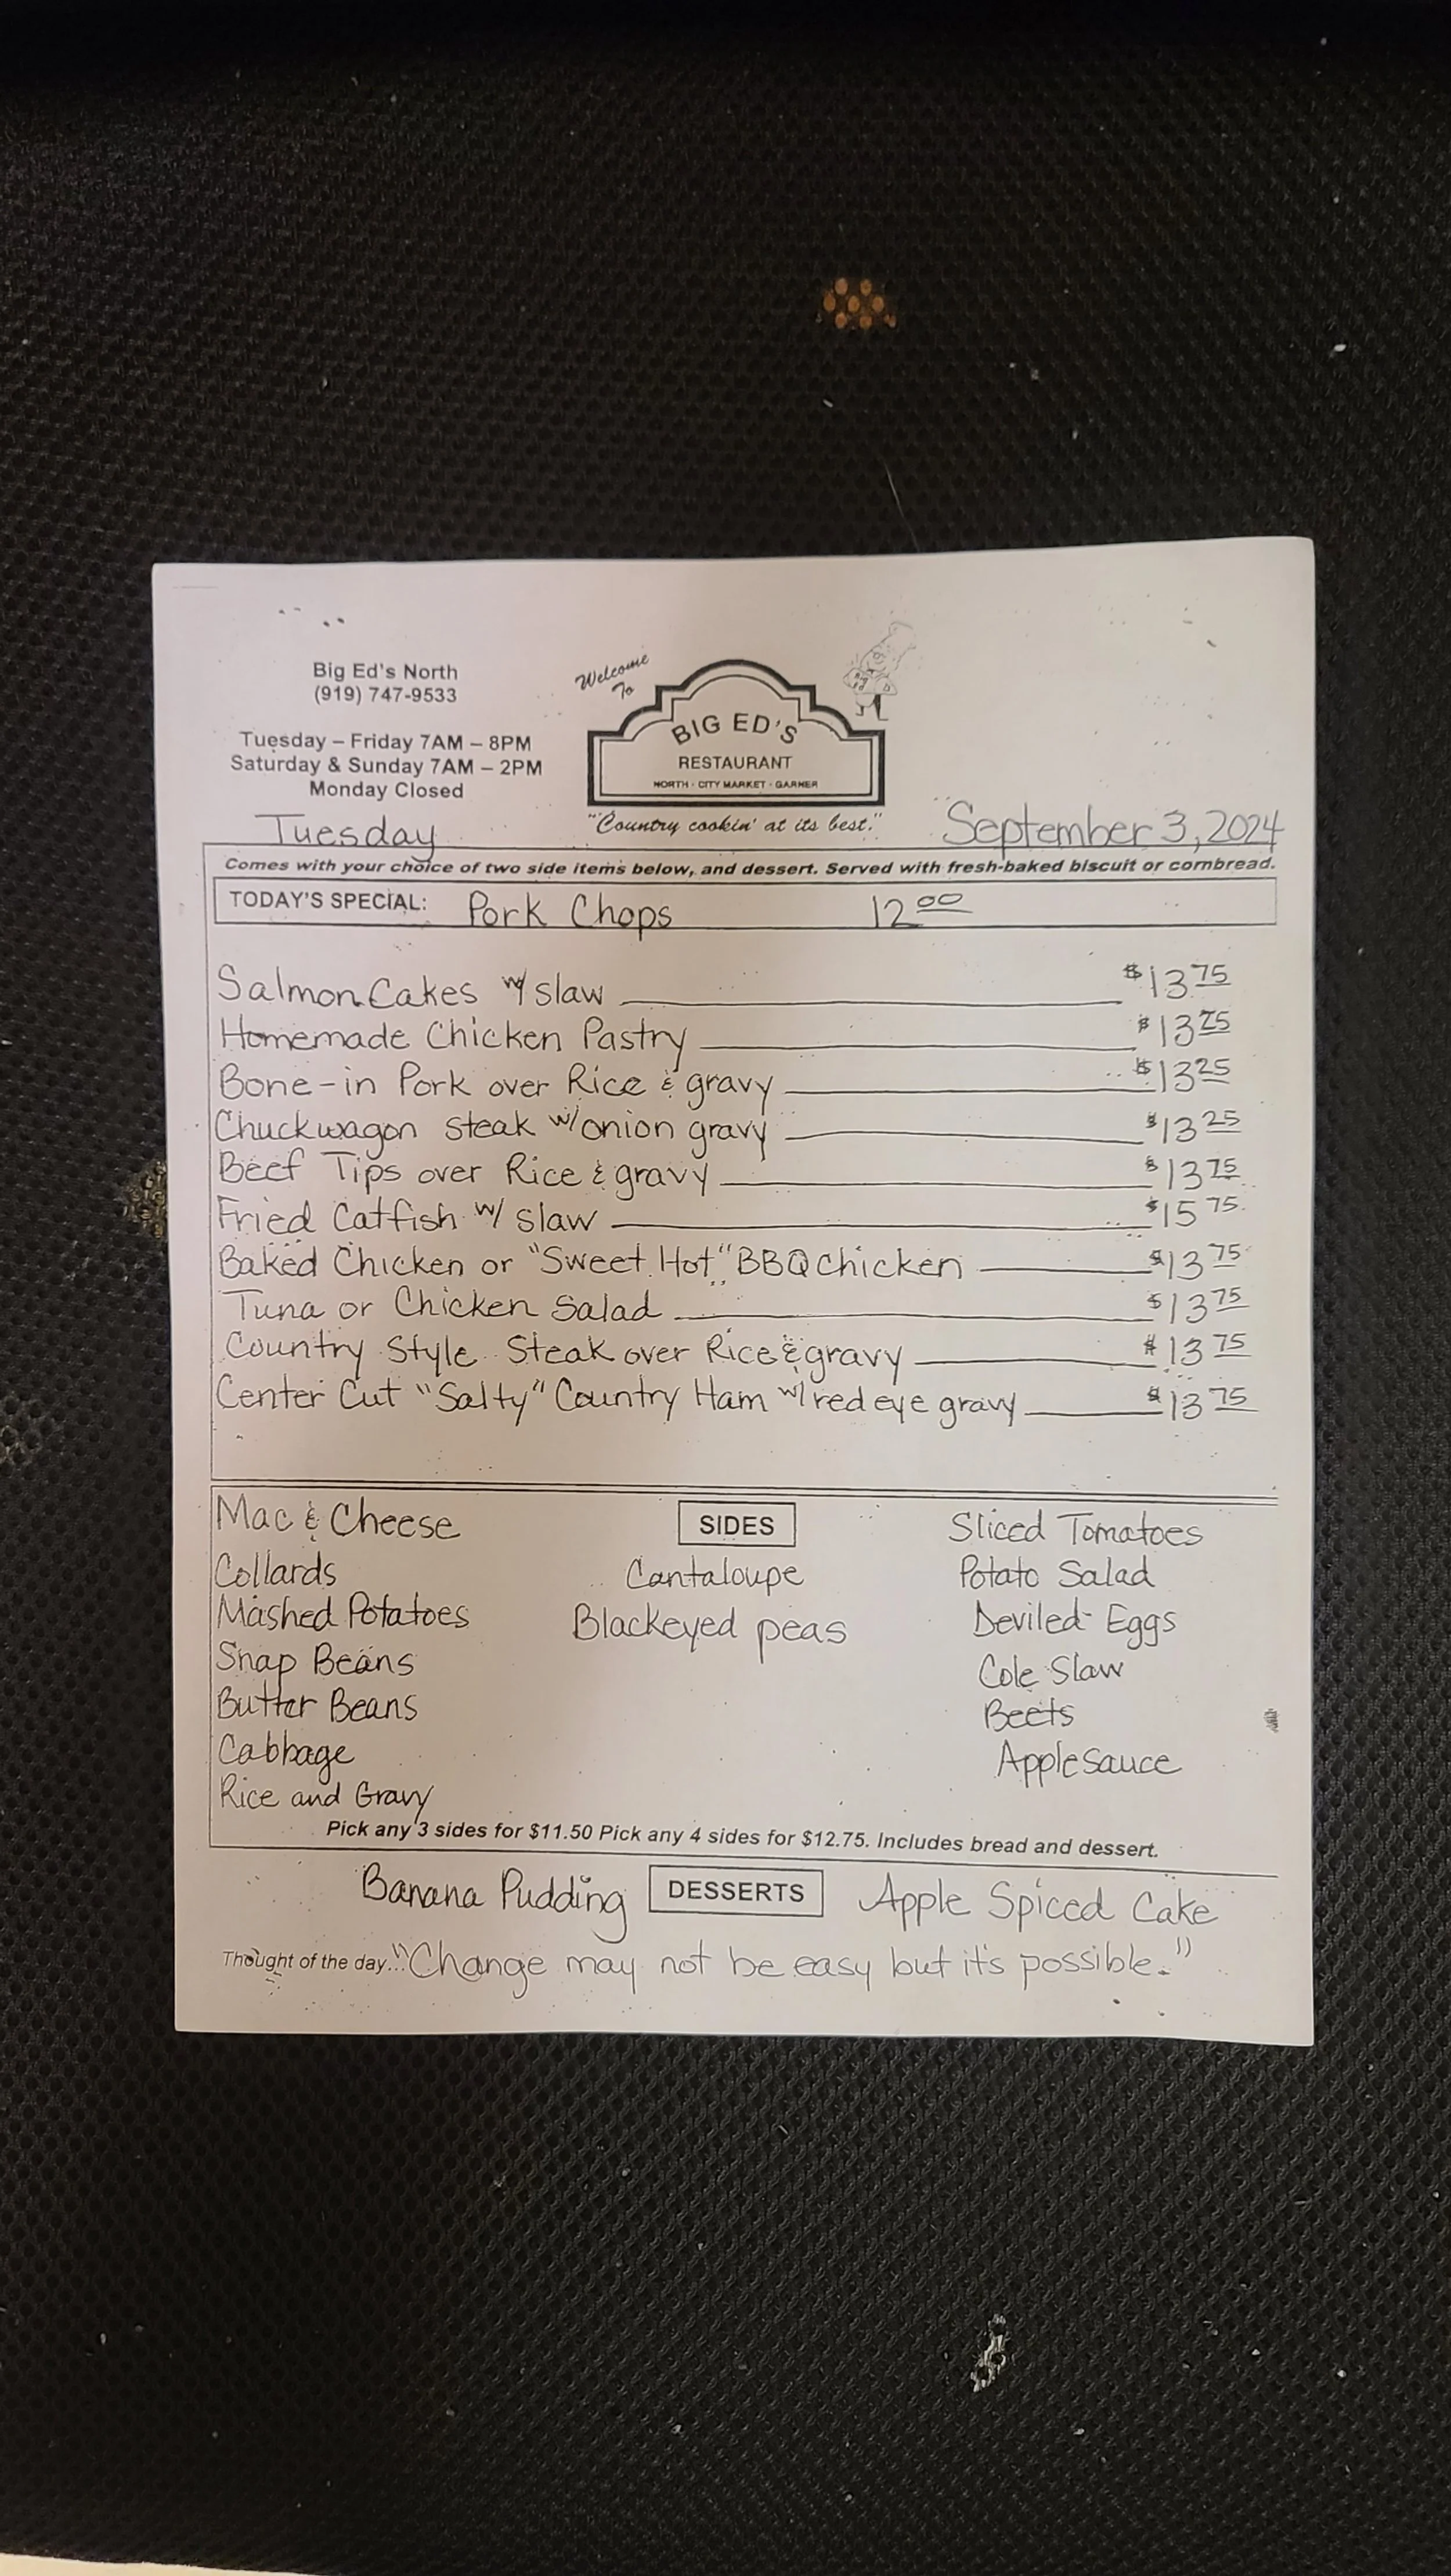 Big Ed's North
(919) 747-9533
Tuesday – Friday 7AM – 8PM
Saturday & Sunday 7AM – 2PM
Monday Closed
Welcome
To
BIG ED'S
RESTAURANT
NORTH · CITY MARKET · GARNER
"Country cookin' at its best."
Tuesday
September 3, 2024
Comes with your choice of two side items below, and dessert. Served with fresh-baked biscuit or cornbread.
TODAY'S SPECIAL: Pork Chops 12 00
Salmon Cakes w/ slaw $13 75
Homemade Chicken Pastry $13 75
Bone-in Pork over Rice & gravy $13 25
Chuckwagon steak w/ onion gravy $13 25
Beef Tips over Rice & gravy $13 75
Fried Catfish w/ slaw $15 75
Baked Chicken or "Sweet Hot" BBQ chicken $13 75
Tuna or Chicken Salad $13 75
Country Style Steak over Rice & gravy $13 75
Center Cut "Salty" Country Ham w/ red eye gravy $13 75
SIDES
Mac & Cheese
Collards
Mashed Potatoes
Snap Beans
Butter Beans
Cabbage
Rice and Gravy
Cantaloupe
Blackeyed peas
Sliced Tomatoes
Potato Salad
Deviled Eggs
Cole Slaw
Beets
Applesauce
Pick any 3 sides for $11.50 Pick any 4 sides for $12.75. Includes bread and dessert.
Banana Pudding DESSERTS Apple Spiced Cake
Thought of the day... "Change may not be easy but it's possible."